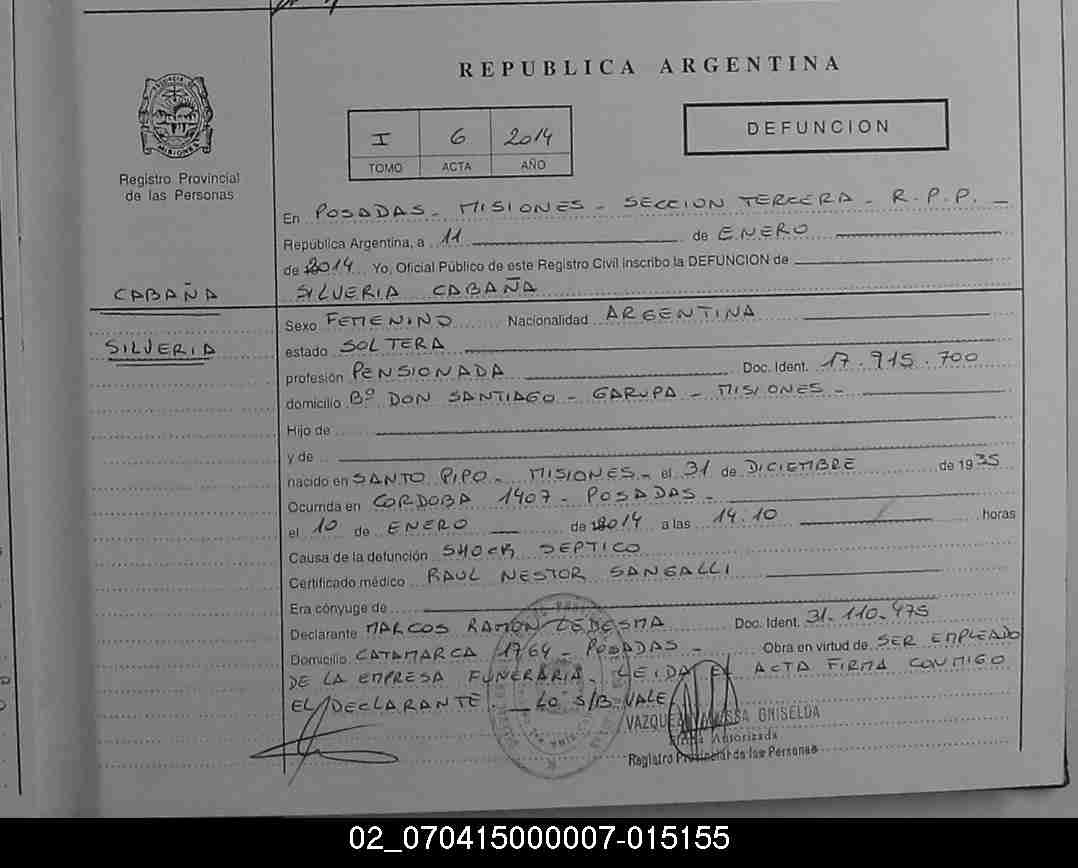 REPUBLICA ARGENTINA
I 6 2014
TOMO ACTA AÑO
DEFUNCION
MISIONES
Registro Provincial
de las Personas
En POSADAS - MISIONES - SECCION TERCERA - R.P.P. -
República Argentina, a 11 de ENERO
de 2014 Yo, Oficial Público de este Registro Civil inscribo la DEFUNCION de
CABAÑA
SILVERIA CABAÑA
SILVERIA
Sexo FEMENINO Nacionalidad ARGENTINA
estado SOLTERA
profesión PENSIONADA Doc. Ident. 17.915.700
domicilio Bº DON SANTIAGO - GARUPA - MISIONES -
Hijo de
y de
nacido en SANTO PIPO - MISIONES - el 31 de DICIEMBRE de 1935
Ocurrida en CORDOBA 1407 - POSADAS -
el 10 de ENERO de 2014 a las 14.10 horas
Causa de la defunción SHOCK SEPTICO
Certificado médico RAUL NESTOR SANGALLI
Era cónyuge de
Declarante MARCOS RAMON LEDESMA Doc. Ident. 31.110.475
Domicilio CATAMARCA 1764 - POSADAS - Obra en virtud de SER EMPLEADO
DE LA EMPRESA FUNERARIA. LEIDA EL ACTA FIRMA CONMIGO
EL DECLARANTE. LO S/B VALE
VAZQUEZ VANESSA GRISELDA
Firma Autorizada
Registro Provincial de las Personas
02_070415000007-015155